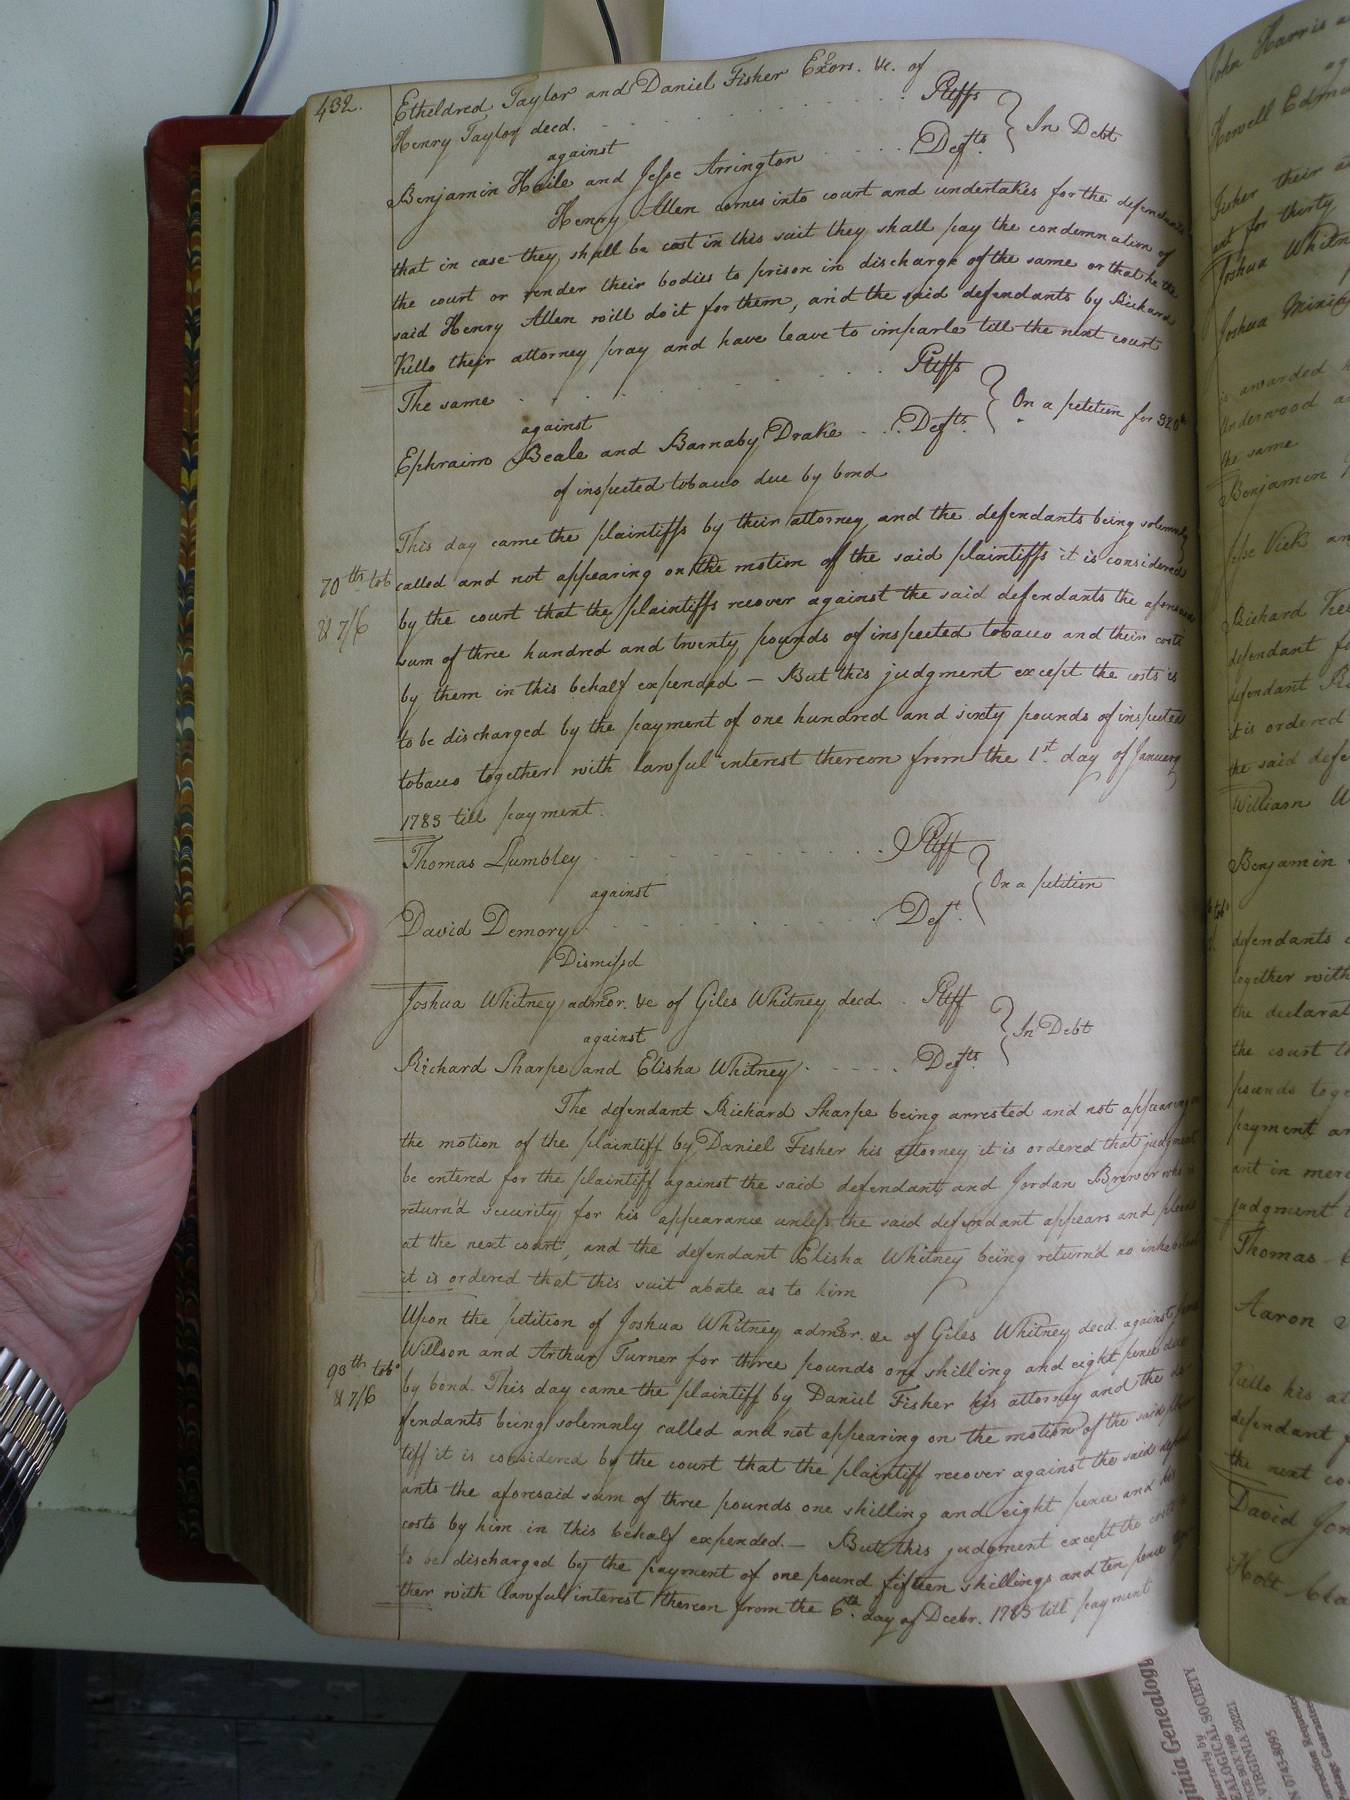 432.
Etheldred Taylor and Daniel Fisher Exors. &c. of
Henry Taylor decd. Pltffs
against In Debt
Benjamin Haile and Jesse Arrington Defts.
Henry Allen comes into court and undertakes for the defendants
that in case they shall be cast in this suit they shall pay the condemnation of
the court or render their bodies to prison in discharge of the same or that he the
said Henry Allen will do it for them, and the said defendants by Richard
Kello their attorney pray and have leave to imparle till the next court
The same Pltffs
against On a petition for 320
Ephraim Beale and Barnaby Drake Defts.
of inspected tobacco due by bond
This day came the plaintiffs by their attorney, and the defendants being solemnly
70 tob called and not appearing on the motion of the said plaintiffs it is considered
& 7/6 by the court that the plaintiffs recover against the said defendants the aforesaid
sum of three hundred and twenty pounds of inspected tobacco and their costs
by them in this behalf expended — But this judgment except the costs is
to be discharged by the payment of one hundred and sixty pounds of inspected
tobacco together with lawful interest thereon from the 1st. day of January
1783 till payment.
Thomas Lumbley Pltff
against On a petition
David Demory Deft.
Dismissd
Joshua Whitney admor. &c of Giles Whitney decd. Pltff
against In Debt
Richard Sharpe and Elisha Whitney Defts.
The defendant Richard Sharpe being arrested and not appearing
the motion of the plaintiff by Daniel Fisher his attorney it is ordered that judgment
be entered for the plaintiff against the said defendant and Jordan Brewer who is
return'd security for his appearance unless the said defendant appears and pleads
at the next court, and the defendant Elisha Whitney being return'd no inhabitant
it is ordered that this suit abate as to him
Upon the petition of Joshua Whitney admor. &c of Giles Whitney decd. against
Willson and Arthur Turner for three pounds one shilling and eight pence due
93 tobo. by bond. This day came the plaintiff by Daniel Fisher his attorney and the de
& 7/6 fendants being solemnly called and not appearing on the motion of the said plain
tiff it is considered by the court that the plaintiff recover against the said defend
ants the aforesaid sum of three pounds one shilling and eight pence and his
costs by him in this behalf expended. — But this judgment except the costs
to be discharged by the payment of one pound fifteen shillings and ten pence
ther with lawful interest thereon from the 6th. day of Decbr. 1783 till payment
John Harris
Howell
Fisher their
ent for thirty
Joshua
Joshua
is awarded
Underwood
the same
Benjamin
Jesse Vick an
Richard
defendant
defendant
it is ordered
the said
William
Benjamin
defendants
together with
the
the court
pounds
payment
ant in
judgment
Thomas
Aaron
Kello his
defendant
the next
David
Holt
inia Genealogi
OGICAL SOCIETY
VIRGINIA 23221